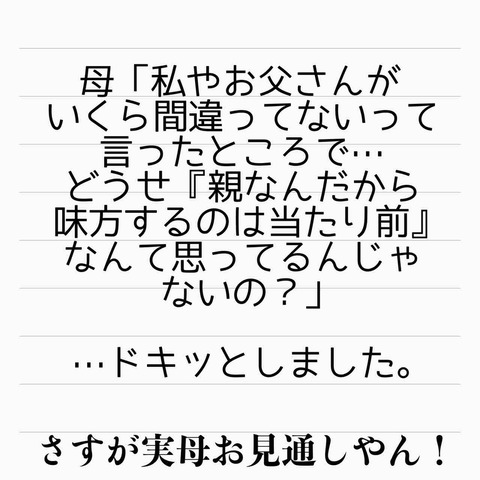 母「私やお父さんが
いくら間違ってないって
言ったところで…
どうせ『親なんだから
味方するのは当たり前』
なんて思ってるんじゃ
ないの？」
…ドキッとしました。
さすが実母お見通しやん！